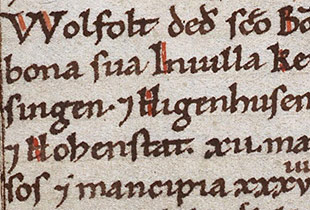 Wolfolt ded sco Bo
bona sua In uilla Ke
singen. ⁊ Nigenhusen
⁊ Hohenstat. xii. ma
sos ⁊ mancipia xxxv
iiii